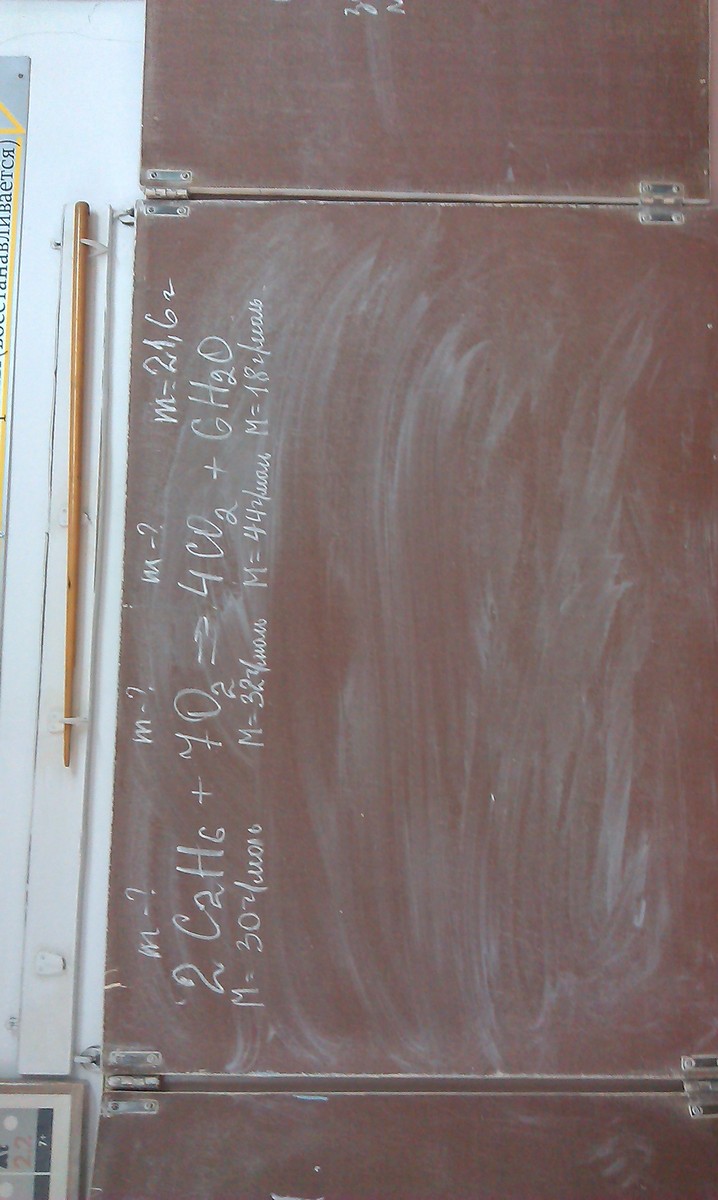 (восстанавливается)
m-? m-? m-? m=21,6 г
2 C2H6 + 7O2 = 4CO2 + 6H2O
M=30 г/моль M=32г/моль M=44г/моль M=18г/моль
At
22